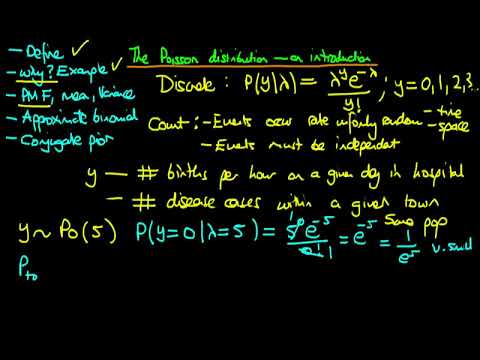 The Poisson distribution — an introduction
— Define ✓
— why? Example ✓
— PMF, mean, Variance
— Approximate binomial
— Conjugate prior
Discrete : P(y|λ) = λ^y e^-λ / y! ; y = 0,1,2,3...
Count : - Events occur rate uniformly random - time
- space
- Events must be independent
y — # births per hour on a given day in hospital
— # disease cases within a given town
Same pop
y ~ Po(5) P(y=0|λ=5) = 5^0 e^-5 / 0! = e^-5 = 1/e^5 v. small
P_to